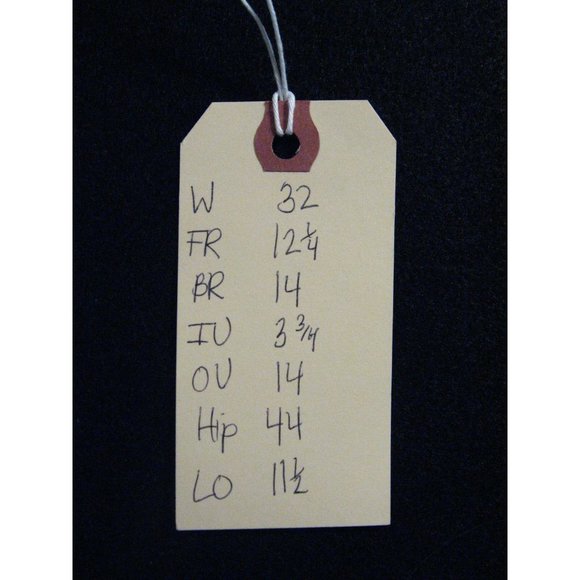 W 32
FR 12 1/4
BR 14
IU 3 3/4
OU 14
Hip 44
LO 11 1/2